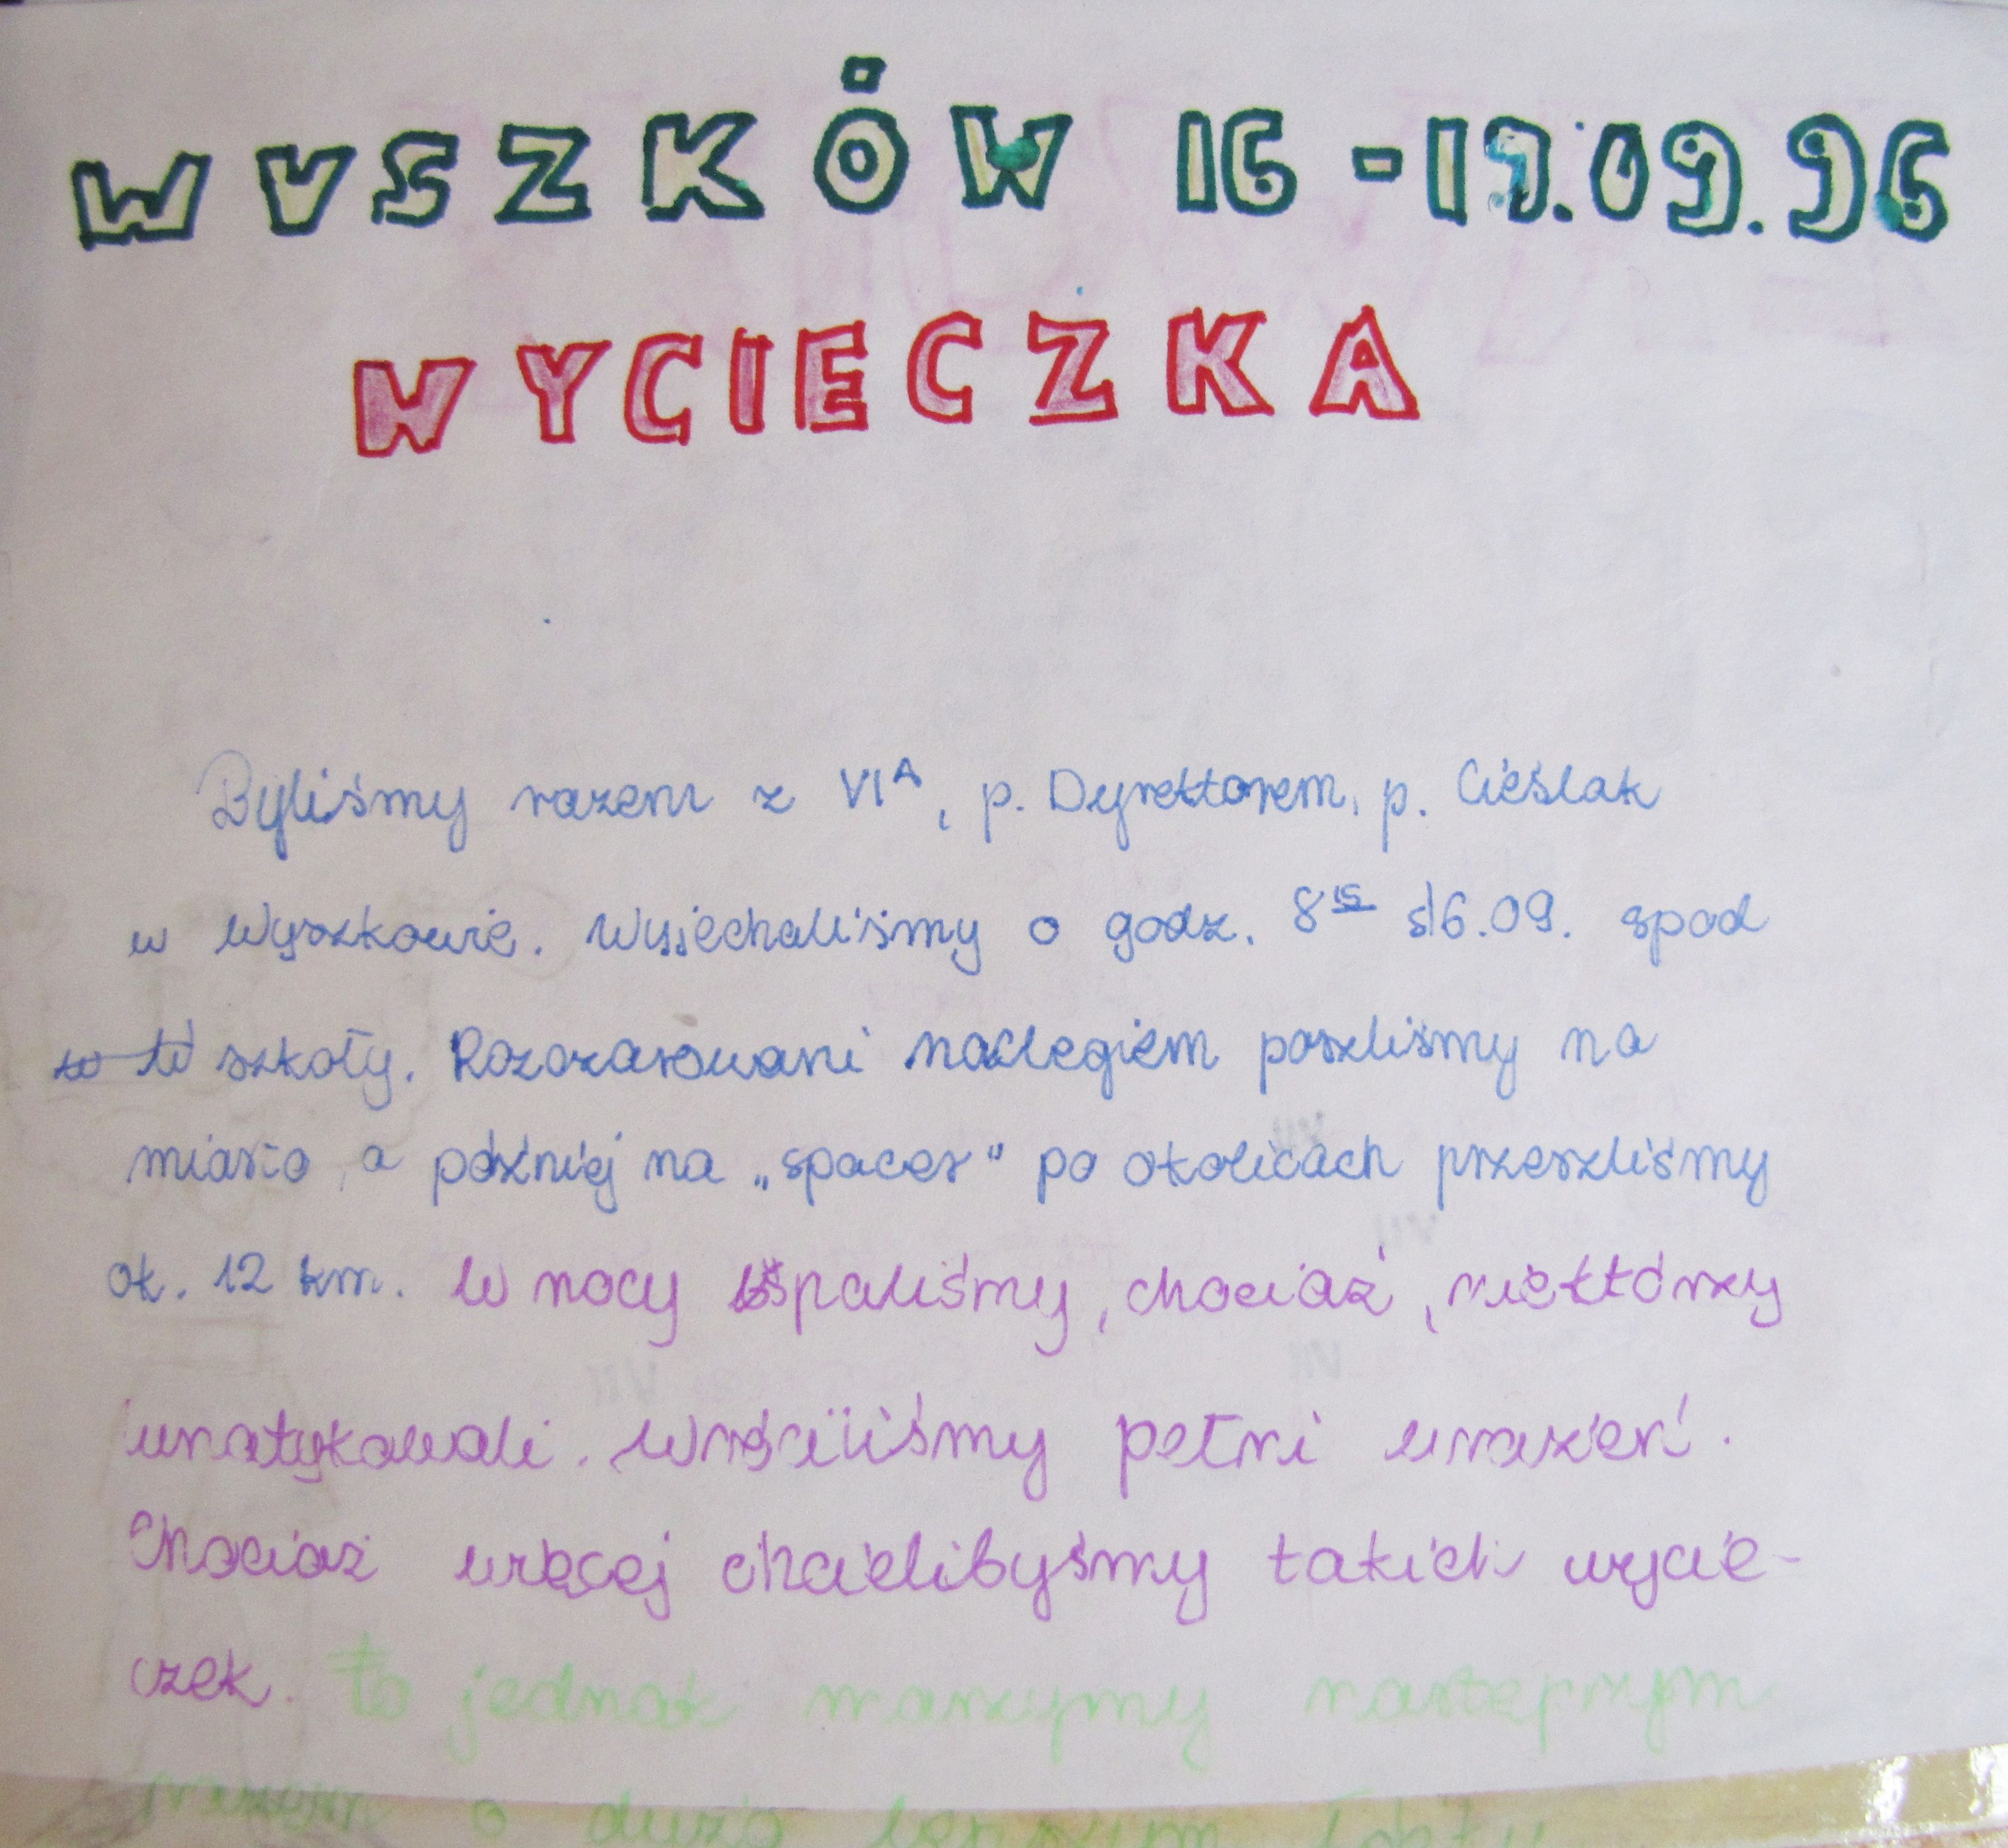 WYSZKÓW 16-17.09.96
WYCIECZKA
Byliśmy razem z VI A, p. Dyrektorem, p. Cieślak
w Wyszkowie. Wyjechaliśmy o godz. 8 15 16.09. spod
szkoły. Rozczarowani noclegiem poszliśmy na
miasto, a później na „spacer" po okolicach przeszliśmy
ok. 12 km. W nocy spaliśmy, chociaż, niektórzy
wrotykowali. Wróciliśmy pełni wrażeń.
Chociaż więcej chcielibyśmy takich wycie-
czek. To jednak marzymy następnym
razem o dużo lepszym